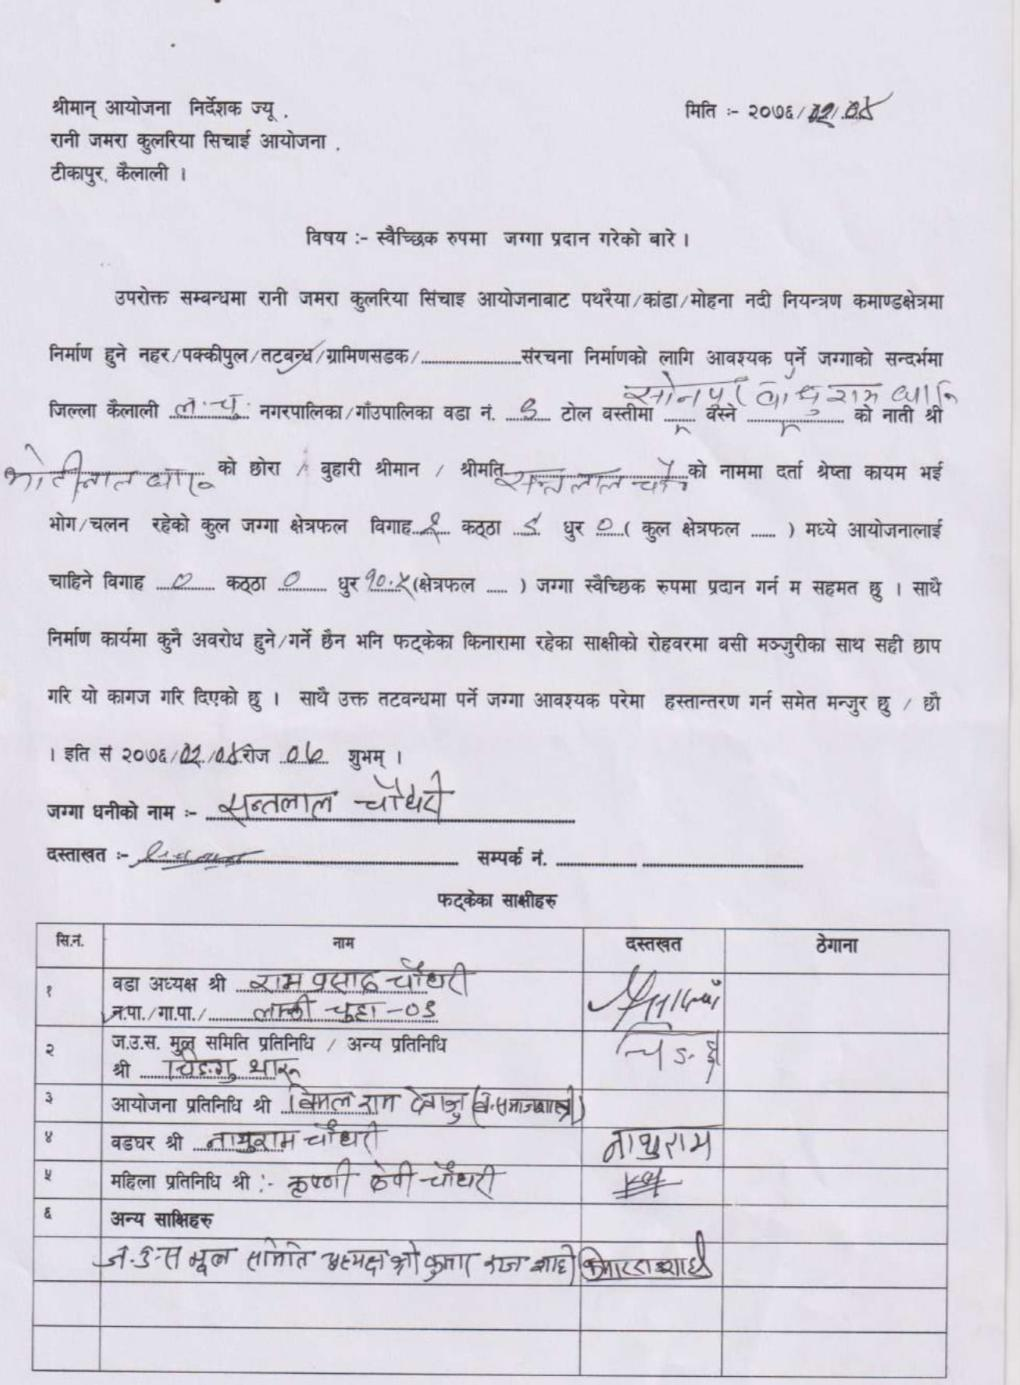 श्रीमान् आयोजना निर्देशक ज्यू .
मिति :- २०७६/02/08
रानी जमरा कुलरिया सिचाई आयोजना .
टीकापुर, कैलाली ।
विषय :- स्वैच्छिक रुपमा जग्गा प्रदान गरेको बारे ।
उपरोक्त सम्बन्धमा रानी जमरा कुलरिया सिंचाइ आयोजनाबाट पथरैया/कांडा/मोहना नदी नियन्त्रण कमाण्डक्षेत्रमा
निर्माण हुने नहर/पक्कीपुल/तटबन्ध/ग्रामिणसडक/........................संरचना निर्माणको लागि आवश्यक पुर्ने जग्गाको सन्दर्भमा
सोनपुर
जिल्ला कैलाली ल.चु. नगरपालिका/गाँउपालिका वडा नं. टोल वस्तीमा ...... वस्ने .................. को नाती श्री
को छोरा / बुहारी श्रीमान / श्रीमति सन्तलाल चौ को नाममा दर्ता श्रेष्ता कायम भई
भोग/चलन रहेको कुल जग्गा क्षेत्रफल विगाह कठ्ठा धुर ०( कुल क्षेत्रफल ...... ) मध्ये आयोजनालाई
चाहिने विगाह ० कठ्ठा ० धुर १०.५(क्षेत्रफल ...... ) जग्गा स्वैच्छिक रुपमा प्रदान गर्न म सहमत छु । साथै
निर्माण कार्यमा कुनै अवरोध हुने/गर्ने छैन भनि फट्केका किनारामा रहेका साक्षीको रोहवरमा वसी मञ्जुरीका साथ सही छाप
गरि यो कागज गरि दिएको छु । साथै उक्त तटवन्धमा पर्ने जग्गा आवश्यक परेमा हस्तान्तरण गर्न समेत मन्जुर छु / छौ
। इति सं २०७६/02/08रोज 06 शुभम् ।
जग्गा धनीको नाम :- सन्तलाल चौधरी
दस्ताखत :- सम्पर्क नं. ................ ................................
फट्केका साक्षीहरु
सि.नं. नाम दस्तखत ठेगाना
१ वडा अध्यक्ष श्री राम प्रसाद चौधरी
न.पा./गा.पा./ लम्की चुहा-०९
२ ज.उ.स. मुल समिति प्रतिनिधि / अन्य प्रतिनिधि
श्री चिङगु थारू
३ आयोजना प्रतिनिधि श्री विमल राम
४ वडघर श्री नाथुराम चौधरी नाथुराम
५ महिला प्रतिनिधि श्री :- कृष्णी देवी चौधरी
६ अन्य साक्षिहरु
ज.उ.स मूल समिति अध्यक्ष श्री कुमार राज शाही